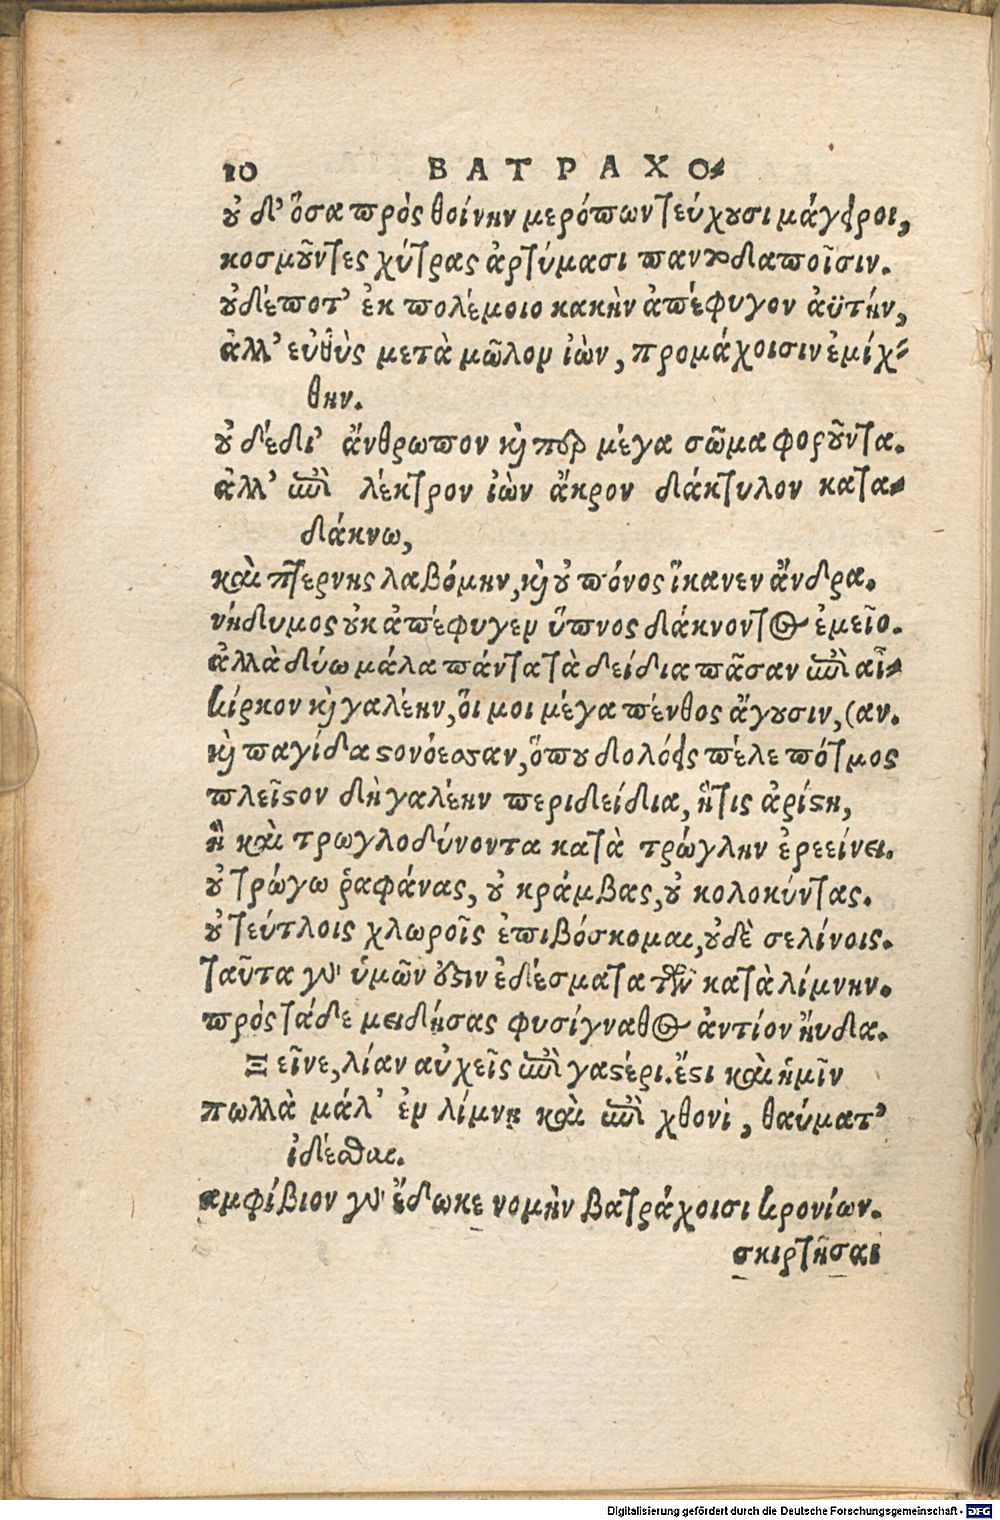 10 ΒΑΤΡΑΧΟ-
οὐδ' ὅσα πρὸς θοίνην μερόπων τεύχουσι μάγειροι,
κοσμοῦντες χύτρας ἀρτύμασι παντοδαποῖσιν.
οὐδέποτ' ἐκ πολέμοιο κακὴν ἀπέφυγον ἀϋτήν,
ἀλλ' εὐθὺς μετὰ μῶλον ἰὼν, προμάχοισιν ἐμίχ-
θην.
οὐ δέδι' ἄνθρωπον καί περ μέγα σῶμα φοροῦντα.
ἀλλ' ἐπὶ λέκτρον ἰὼν ἄκρον δάκτυλον κατα-
δάκνω,
καὶ πτέρνης λαβόμην, καὶ οὐ πόνος ἵκανεν ἄνδρα.
νήδυμος οὐκ ἀπέφυγεν ὕπνος δάκνοντος ἐμεῖο.
ἀλλὰ δύω μάλα πάντα τὰ δείδια πᾶσαν ἐπὶ αἶ-
κίρκον καὶ γαλέην, οἵ μοι μέγα πένθος ἄγουσιν, (αν.
καὶ παγίδα στονόεσσαν, ὅπου δολόεις πέλε πότμος
πλεῖστον δὴ γαλέην περιδείδια, ἥτις ἀρίστη,
ἣ καὶ τρωγλοδύνοντα κατὰ τρώγλην ἐρεείνει.
οὐ τρώγω ῥαφάνας, οὐ κράμβας, οὐ κολοκύντας.
οὐ τεύτλοις χλωροῖς ἐπιβόσκομαι, οὐδὲ σελίνοις.
ταῦτα γὰρ ὑμῶν ἐστιν ἐδέσματα τῶν κατὰ λίμνην.
πρὸς τάδε μειδήσας φυσίγναθος ἀντίον ηὔδα.
Ξεῖνε, λίαν αὐχεῖς ἐπὶ γαστέρι. ἔστι καὶ ἡμῖν
πωλλὰ μάλ' ἐν λίμνῃ καὶ ἐπὶ χθονὶ, θαύματ'
ἰδέσθαι.
αμφίβιον γὰρ ἔδωκε νομὴν βατράχοισι κρονίων.
σκιρτῆσαι
Digitalisierung gefördert durch die Deutsche Forschungsgemeinschaft - DFG